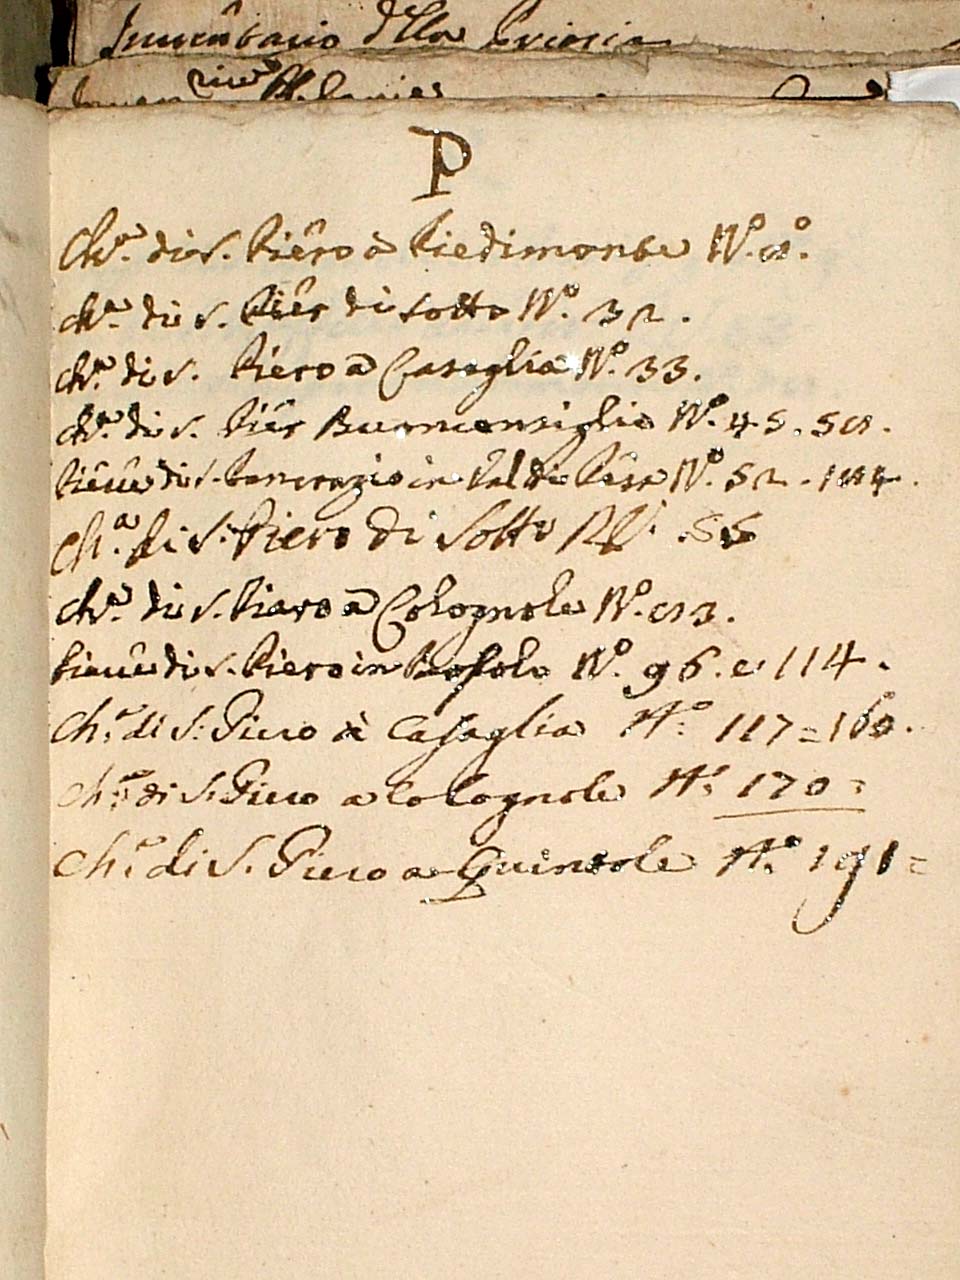 Inventario della Prioria
P
Ch.ª di S. Piero à Piedimonte N.º
Ch.ª di S. Pier di sotto N.º 32.
Ch.ª di S. Piero a Casaglia N.º 33.
Ch.ª di S. Pier Buonconsiglio N.º 45.
Pieve di S. Pancrazio in Val di Pesa N.º 52.
Ch.ª di S. Piero di Sotto
Ch.ª di S. Piero a Colognole N.º
Pieve di S. Piero in Bossolo N.º 96. e 114.
Ch.ª di S. Piero à Casaglia N.º 117=160.
Ch.ª di S. Piero a Colognole N.º 170=
Ch.ª di S. Piero a Quintole N.º 191=